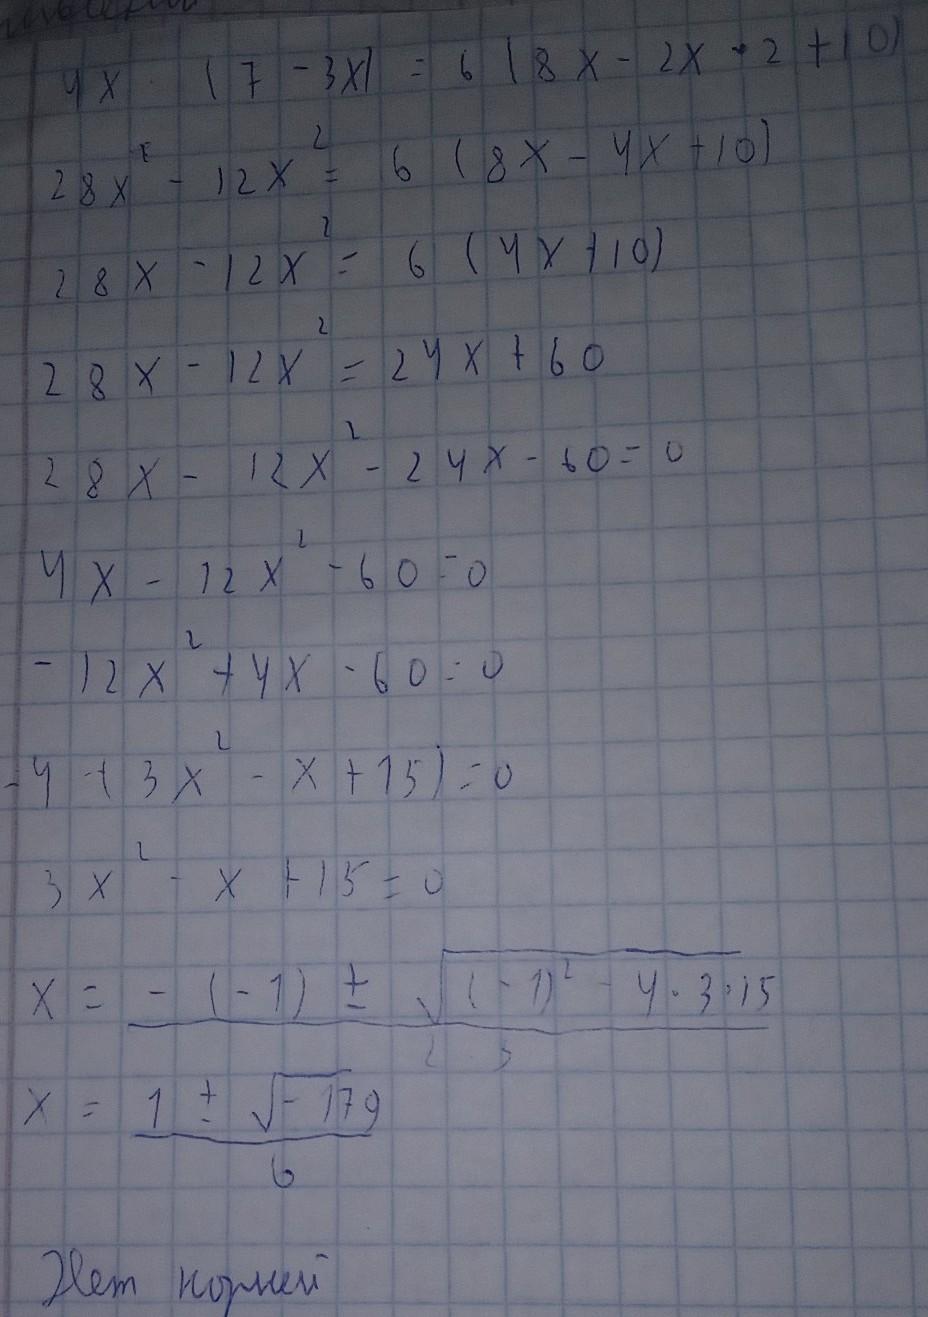 4x · (7 - 3x) = 6 (8x - 2x · 2 + 10)
28x - 12x² = 6 (8x - 4x + 10)
28x - 12x² = 6 (4x + 10)
28x - 12x² = 24x + 60
28x - 12x² - 24x - 60 = 0
4x - 12x² - 60 = 0
-12x² + 4x - 60 = 0
-4 · (3x² - x + 15) = 0
3x² - x + 15 = 0
x = \frac{-(-1) ± √((-1)² - 4 · 3 · 15)}{2 · 3}
x = \frac{1 ± √(-179)}{6}
Нет корней